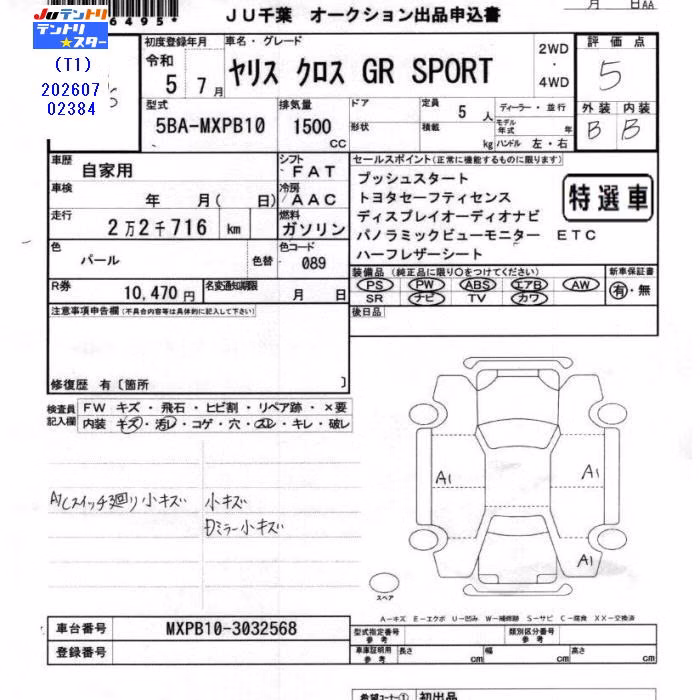 6495*
Juテントリ
テントリ★スター
(T1)
202607
02384
JU千葉 オークション出品申込書
月 日AA
初度登録年月
令和
5 7月
車名・グレード
ヤリス クロス GR SPORT
2WD
・
4WD
評価点
5
外装 内装
B B
型式
5BA-MXPB10
排気量
1500
CC
ドア
形状
定員
5人
積載
kg
ディーラー・並行
モデル年式 年
ハンドル 左・右
車歴
自家用
シフト
FAT
車検
年 月( 日)
冷房
AAC
走行
2万2千716 km
燃料
ガソリン
色
パール
色替
色コード
089
R券
10,470円
名変通知期限
月 日
セールスポイント(正常に機能するものに限ります)
プッシュスタート
トヨタセーフティセンス
ディスプレイオーディオナビ
パノラミックビューモニター ETC
ハーフレザーシート
特選車
装備品(純正品に限り○をつけてください)
PS PW ABS エアB AW
SR ナビ TV カワ
新車保証書
有・無
後日品
注意事項申告欄(不具合内容等は具体的に記入して下さい)
修復歴 有〔箇所 〕
検査員
記入欄
FW キズ・飛石・ヒビ割・リペア跡・×要
内装 キズ・汚レ・コゲ・穴・スレ・キレ・破レ
小キズ 小キズ
ミラー小キズ
A1 A1
A1
スペア
A-キズ E-エクボ U-凹み W-補修跡 S-サビ C-腐食 XX-交換済
車台番号
MXPB10-3032568
登録番号
型式指定番号
参考
類別区分番号
参考
車庫証明用
参考
長さ cm
幅 cm
高さ cm
希望コーナー① 初出品